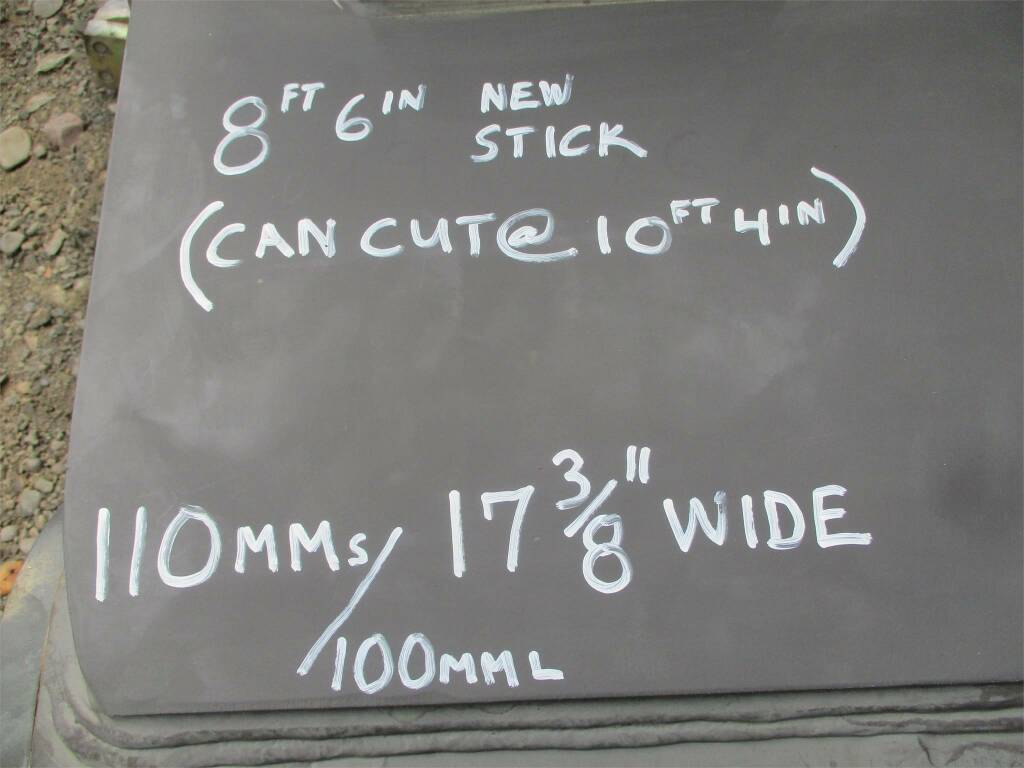 8 FT 6 IN NEW
STICK
(CAN CUT @ 10 FT 4 IN)
110 MMS/ 17 3/8" WIDE
100 MML